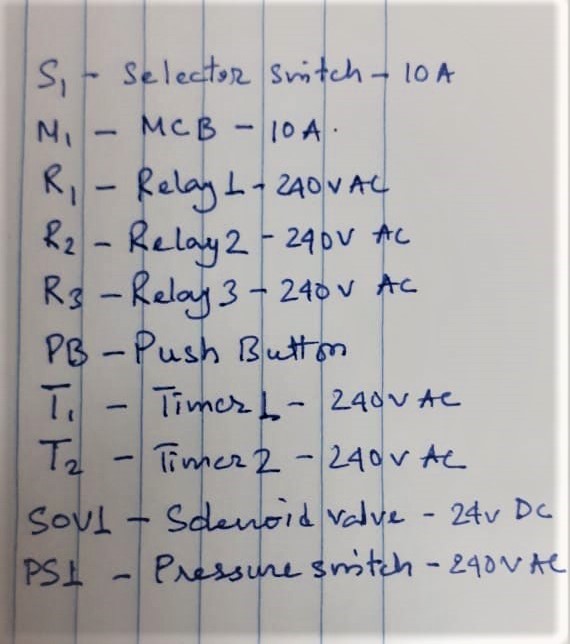 S1 - Selector switch - 10A
M1 - MCB - 10A.
R1 - Relay 1 - 240V AC
R2 - Relay 2 - 240V AC
R3 - Relay 3 - 240V AC
PB - Push Button
T1 - Timer 1 - 240V AC
T2 - Timer 2 - 240V AC
SOV1 - Solenoid valve - 24V DC
PS1 - Pressure switch - 240V AC